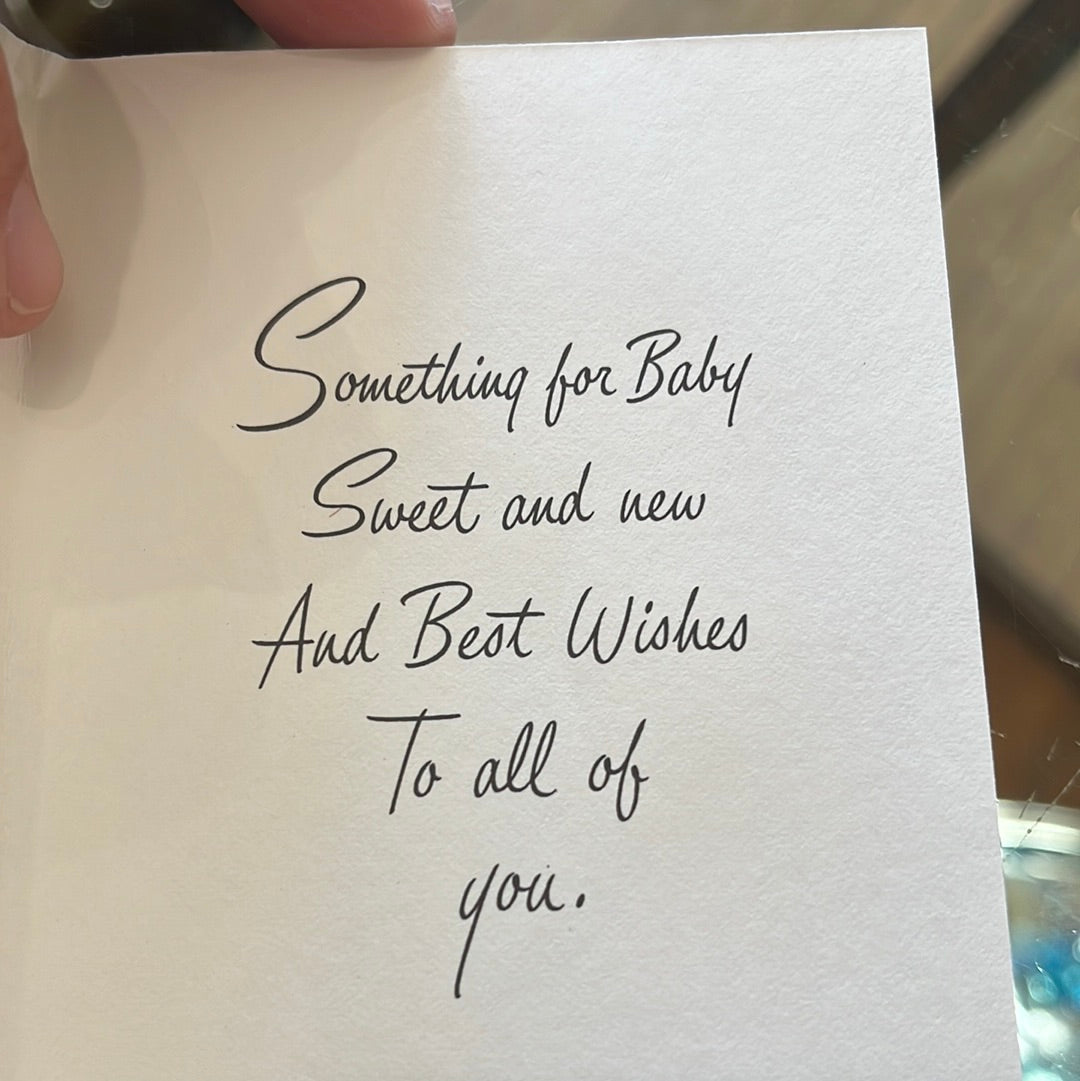 Something for Baby
Sweet and new
And Best Wishes
To all of
you.